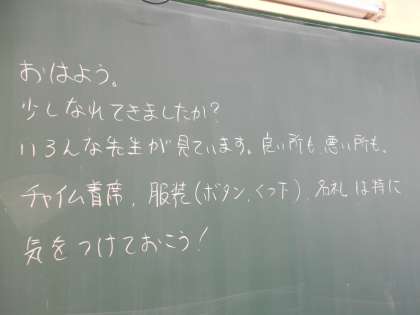 おはよう。
少しなれてきましたか?
いろんな先生が見ています。良い所も、悪い所も、
チャイム着席、服装(ボタン、くつ下)、名札は特に
気をつけておこう!